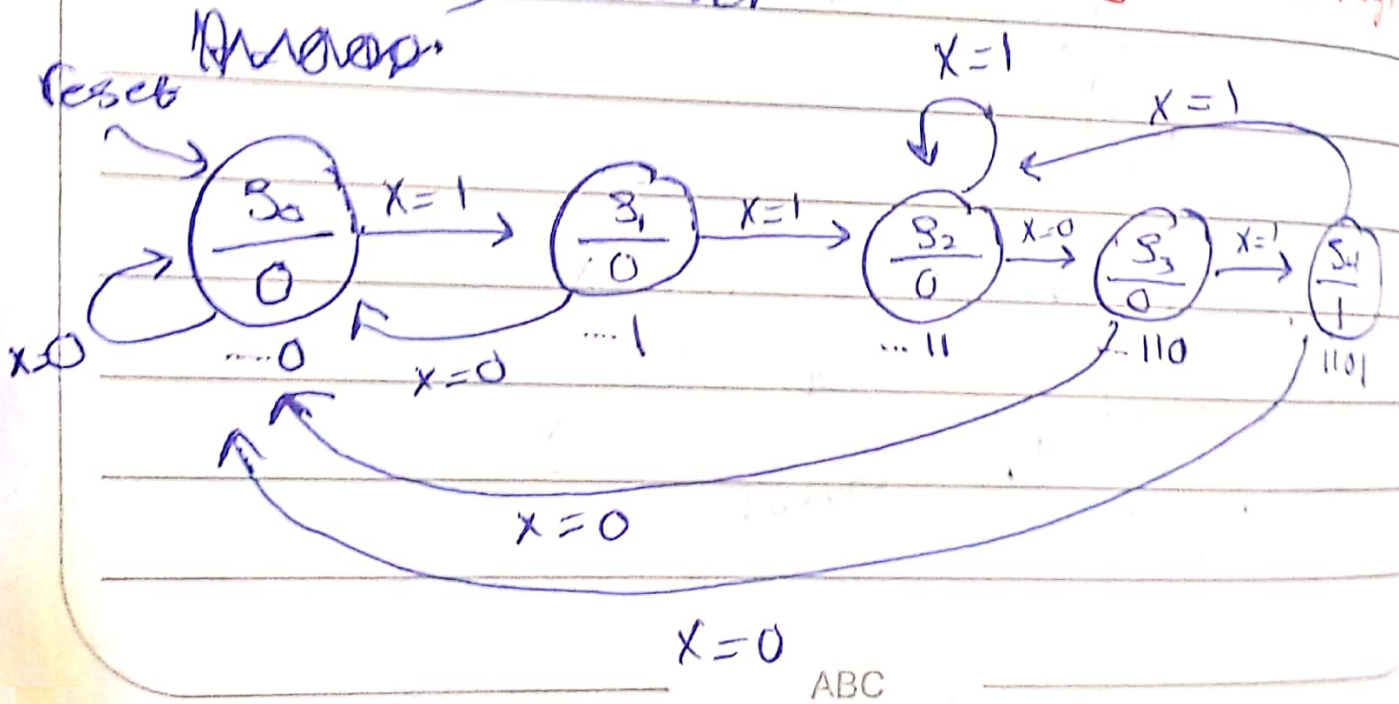 reset
x=1
x=1
S0
0
x=1
S1
0
x=1
S2
0
x=0
S3
0
x=1
S4
1
x=0
.....0
x=0
....1
...11
...110
1101
x=0
x=0
ABC